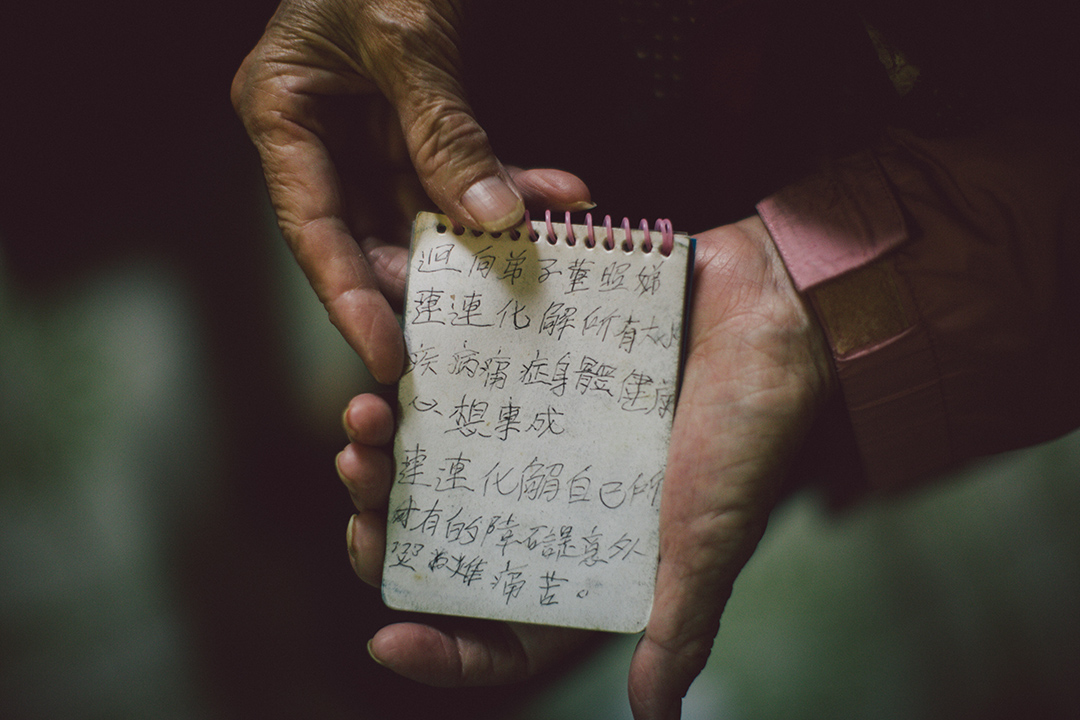 迴向弟子葉照娣
蓮連化解所有大小
疾病痛症身體健康
心想事成
蓮連化解自己所
有的障碍意外
難痛苦。